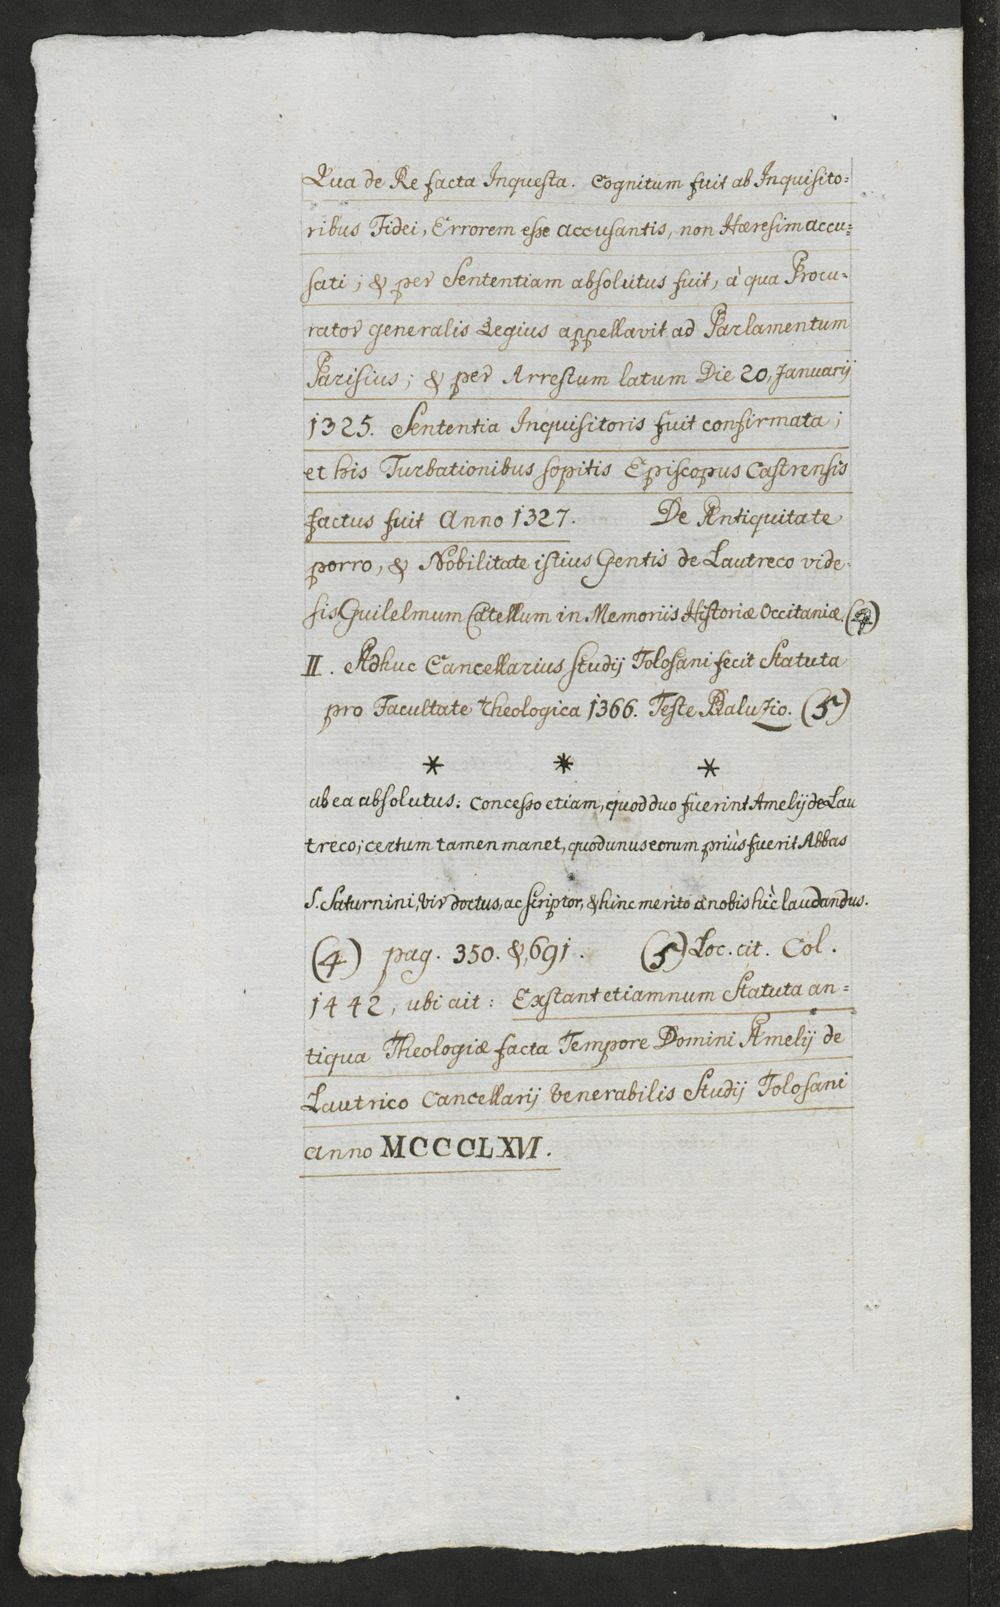 Qua de Re facta Inquesta. Cognitum fuit ab Inquisito=
ribus Fidei, Errorem esse accusantis, non Hæresim accu=
sati; & per Sententiam absolutus fuit, à qua Procu=
rator generalis Regius appellavit ad Parlamentum
Parisius; & per Arrestum latum Die 20, Januarij
1325. Sententia Inquisitoris fuit confirmata;
et his Turbationibus sopitis Episcopus Castrensis
factus fuit Anno 1327. De Antiquitate
porro, & Nobilitate istius Gentis de Lautreco vide-
sis Guilelmum Catellum in Memoriis Historiæ Occitaniæ. (4)
II. Adhuc Cancellarius Studij Tolosani fecit Statuta
pro Facultate Theologica 1366. Teste Baluzio. (5)
* * *
ab ea absolutus: concesso etiam, quod duo fuerint Amelij de Lau
treco; certum tamen manet, quod unus eorum priùs fuerit Abbas
S. Saturnini, vir doctus, ac scriptor, & hinc merito à nobis hìc laudandus.
(4) pag. 350. & 691. (5) Loc. cit. Col.
1442, ubi ait: Exstant etiamnum Statuta an=
tiqua Theologiæ facta Tempore Domini Amelij de
Lautrico Cancellarij Venerabilis Studij Tolosani
anno MCCCLXVI.